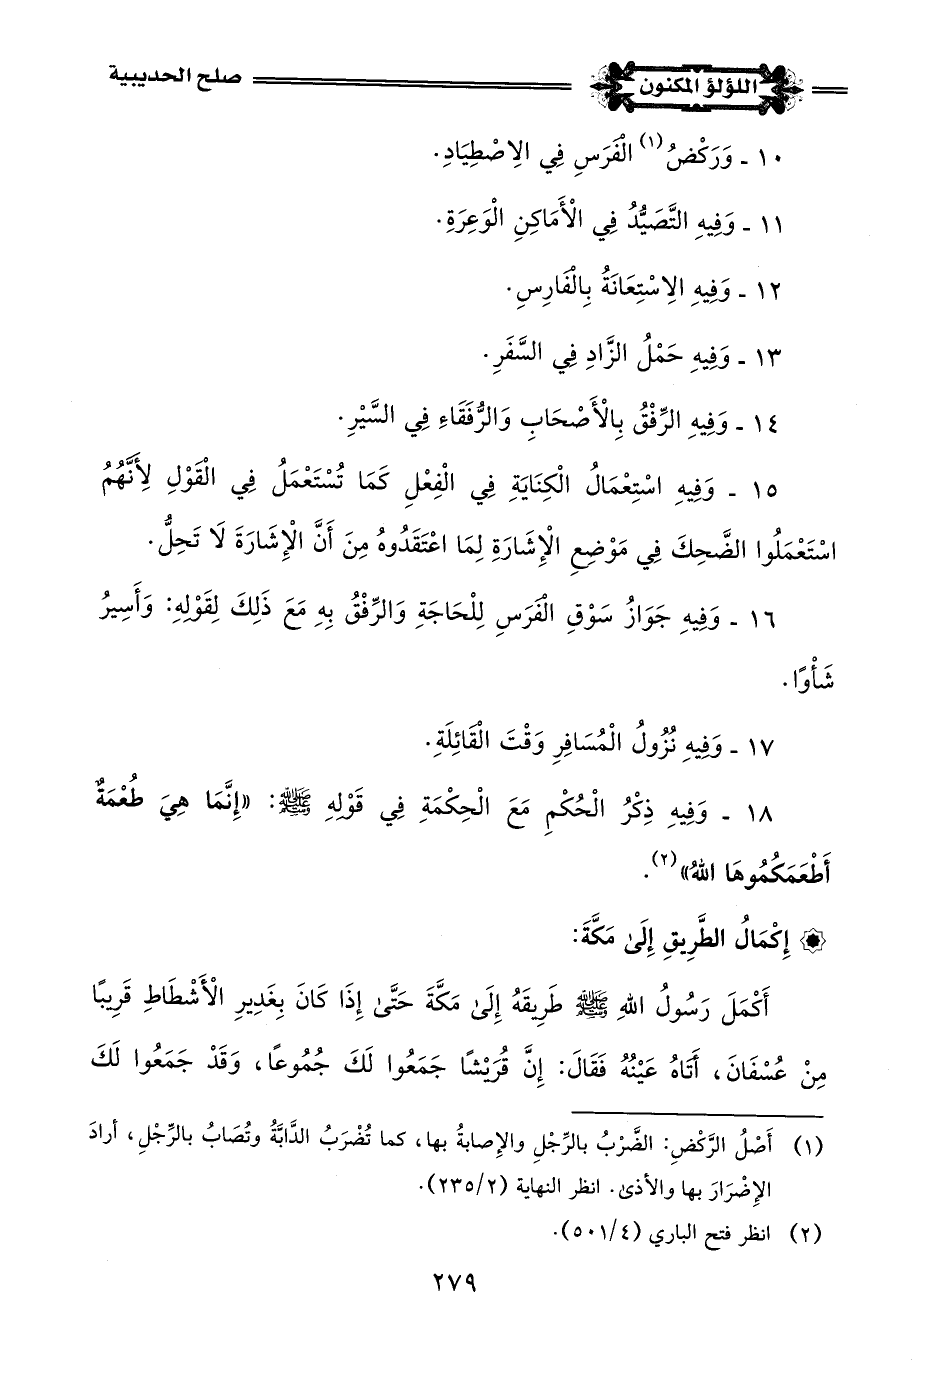 اللؤلؤ المكنون صلح الحديبية
١٠ ـ وَرَكْضُ(١) الْفَرَسِ فِي الِاصْطِيَادِ.
١١ ـ وَفِيهِ التَّصَيُّدُ فِي الْأَمَاكِنِ الْوَعِرَةِ.
١٢ ـ وَفِيهِ الِاسْتِعَانَةُ بِالْفَارِسِ.
١٣ ـ وَفِيهِ حَمْلُ الزَّادِ فِي السَّفَرِ.
١٤ ـ وَفِيهِ الرِّفْقُ بِالْأَصْحَابِ وَالرُّفَقَاءِ فِي السَّيْرِ.
١٥ ـ وَفِيهِ اسْتِعْمَالُ الْكِنَايَةِ فِي الْفِعْلِ كَمَا تُسْتَعْمَلُ فِي الْقَوْلِ لِأَنَّهُمُ
اسْتَعْمَلُوا الضَّحِكَ فِي مَوْضِعِ الْإِشَارَةِ لِمَا اعْتَقَدُوهُ مِنَ أَنَّ الْإِشَارَةَ لَا تَحِلُّ.
١٦ ـ وَفِيهِ جَوَازُ سَوْقِ الْفَرَسِ لِلْحَاجَةِ وَالرِّفْقُ بِهِ مَعَ ذَلِكَ لِقَوْلِهِ: وَأَسِيرُ
شَأْوًا.
١٧ ـ وَفِيهِ نُزُولُ الْمُسَافِرِ وَقْتَ الْقَائِلَةِ.
١٨ ـ وَفِيهِ ذِكْرُ الْحُكْمِ مَعَ الْحِكْمَةِ فِي قَوْلِهِ ﷺ: «إِنَّمَا هِيَ طُعْمَةٌ
أَطْعَمَكُمُوهَا اللهُ»(٢).
۞ إِكْمَالُ الطَّرِيقِ إِلَىٰ مَكَّةَ:
أَكْمَلَ رَسُولُ اللهِ ﷺ طَرِيقَهُ إِلَىٰ مَكَّةَ حَتَّىٰ إِذَا كَانَ بِغَدِيرِ الْأَشْطَاطِ قَرِيبًا
مِنْ عُسْفَانَ، أَتَاهُ عَيْنُهُ فَقَالَ: إِنَّ قُرَيْشًا جَمَعُوا لَكَ جُمُوعًا، وَقَدْ جَمَعُوا لَكَ
(١) أَصْلُ الرَّكْضِ: الضَّرْبُ بالرِّجْلِ والإصابةُ بها، كما تُضْرَبُ الدَّابَّةُ وتُصَابُ بالرِّجْلِ، أرادَ
الإِضْرَارَ بها والأذىٰ. انظر النهاية (٢/٢٣٥).
(٢) انظر فتح الباري (٤/٥٠١).
٢٧٩